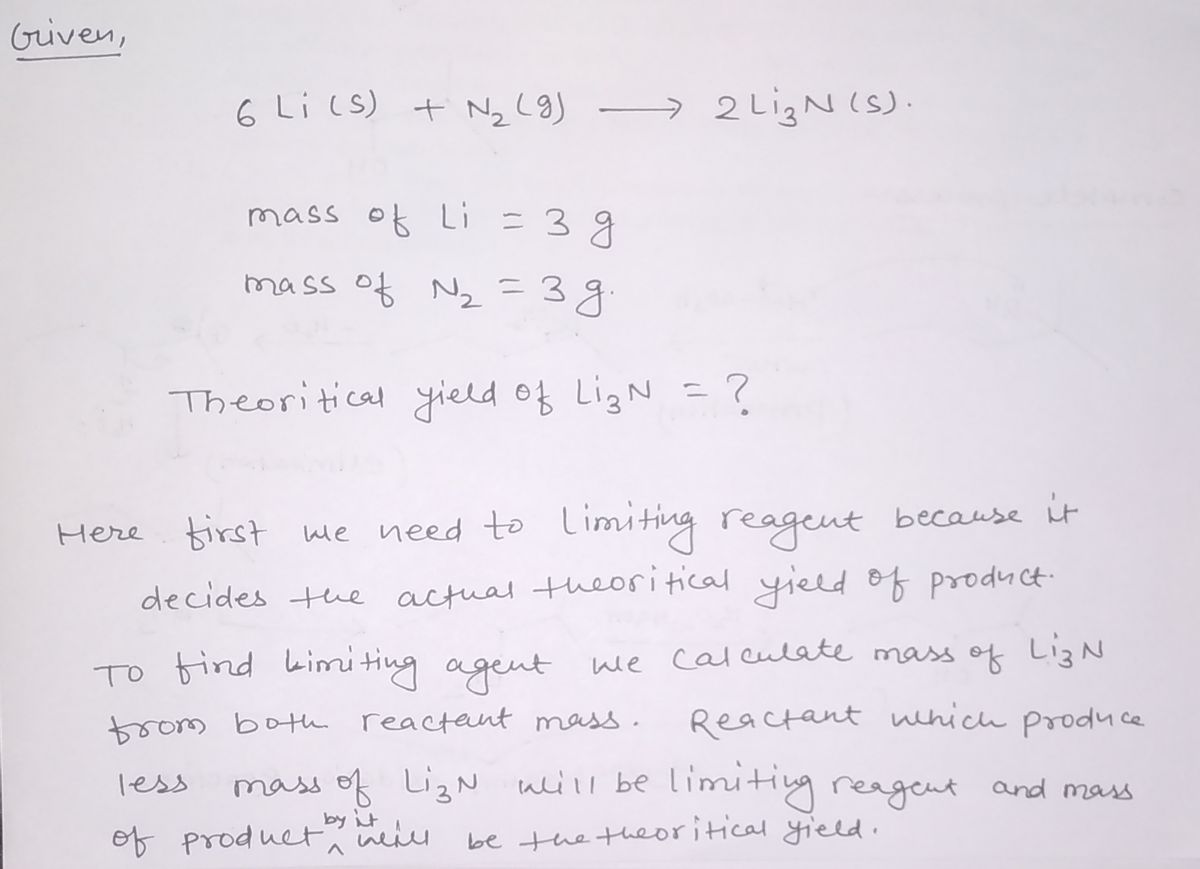 Given,
6 Li (s) + N₂ (g) ⟶ 2 Li₃N (s).
mass of Li = 3 g
mass of N₂ = 3 g.
Theoritical yield of Li₃N = ?
Here first we need to limiting reagent because it
decides the actual theoritical yield of product.
To find Limiting agent we calculate mass of Li₃N
from both reactant mass. Reactant which produce
less mass of Li₃N will be limiting reagent and mass
of product by it will be the theoritical yield.